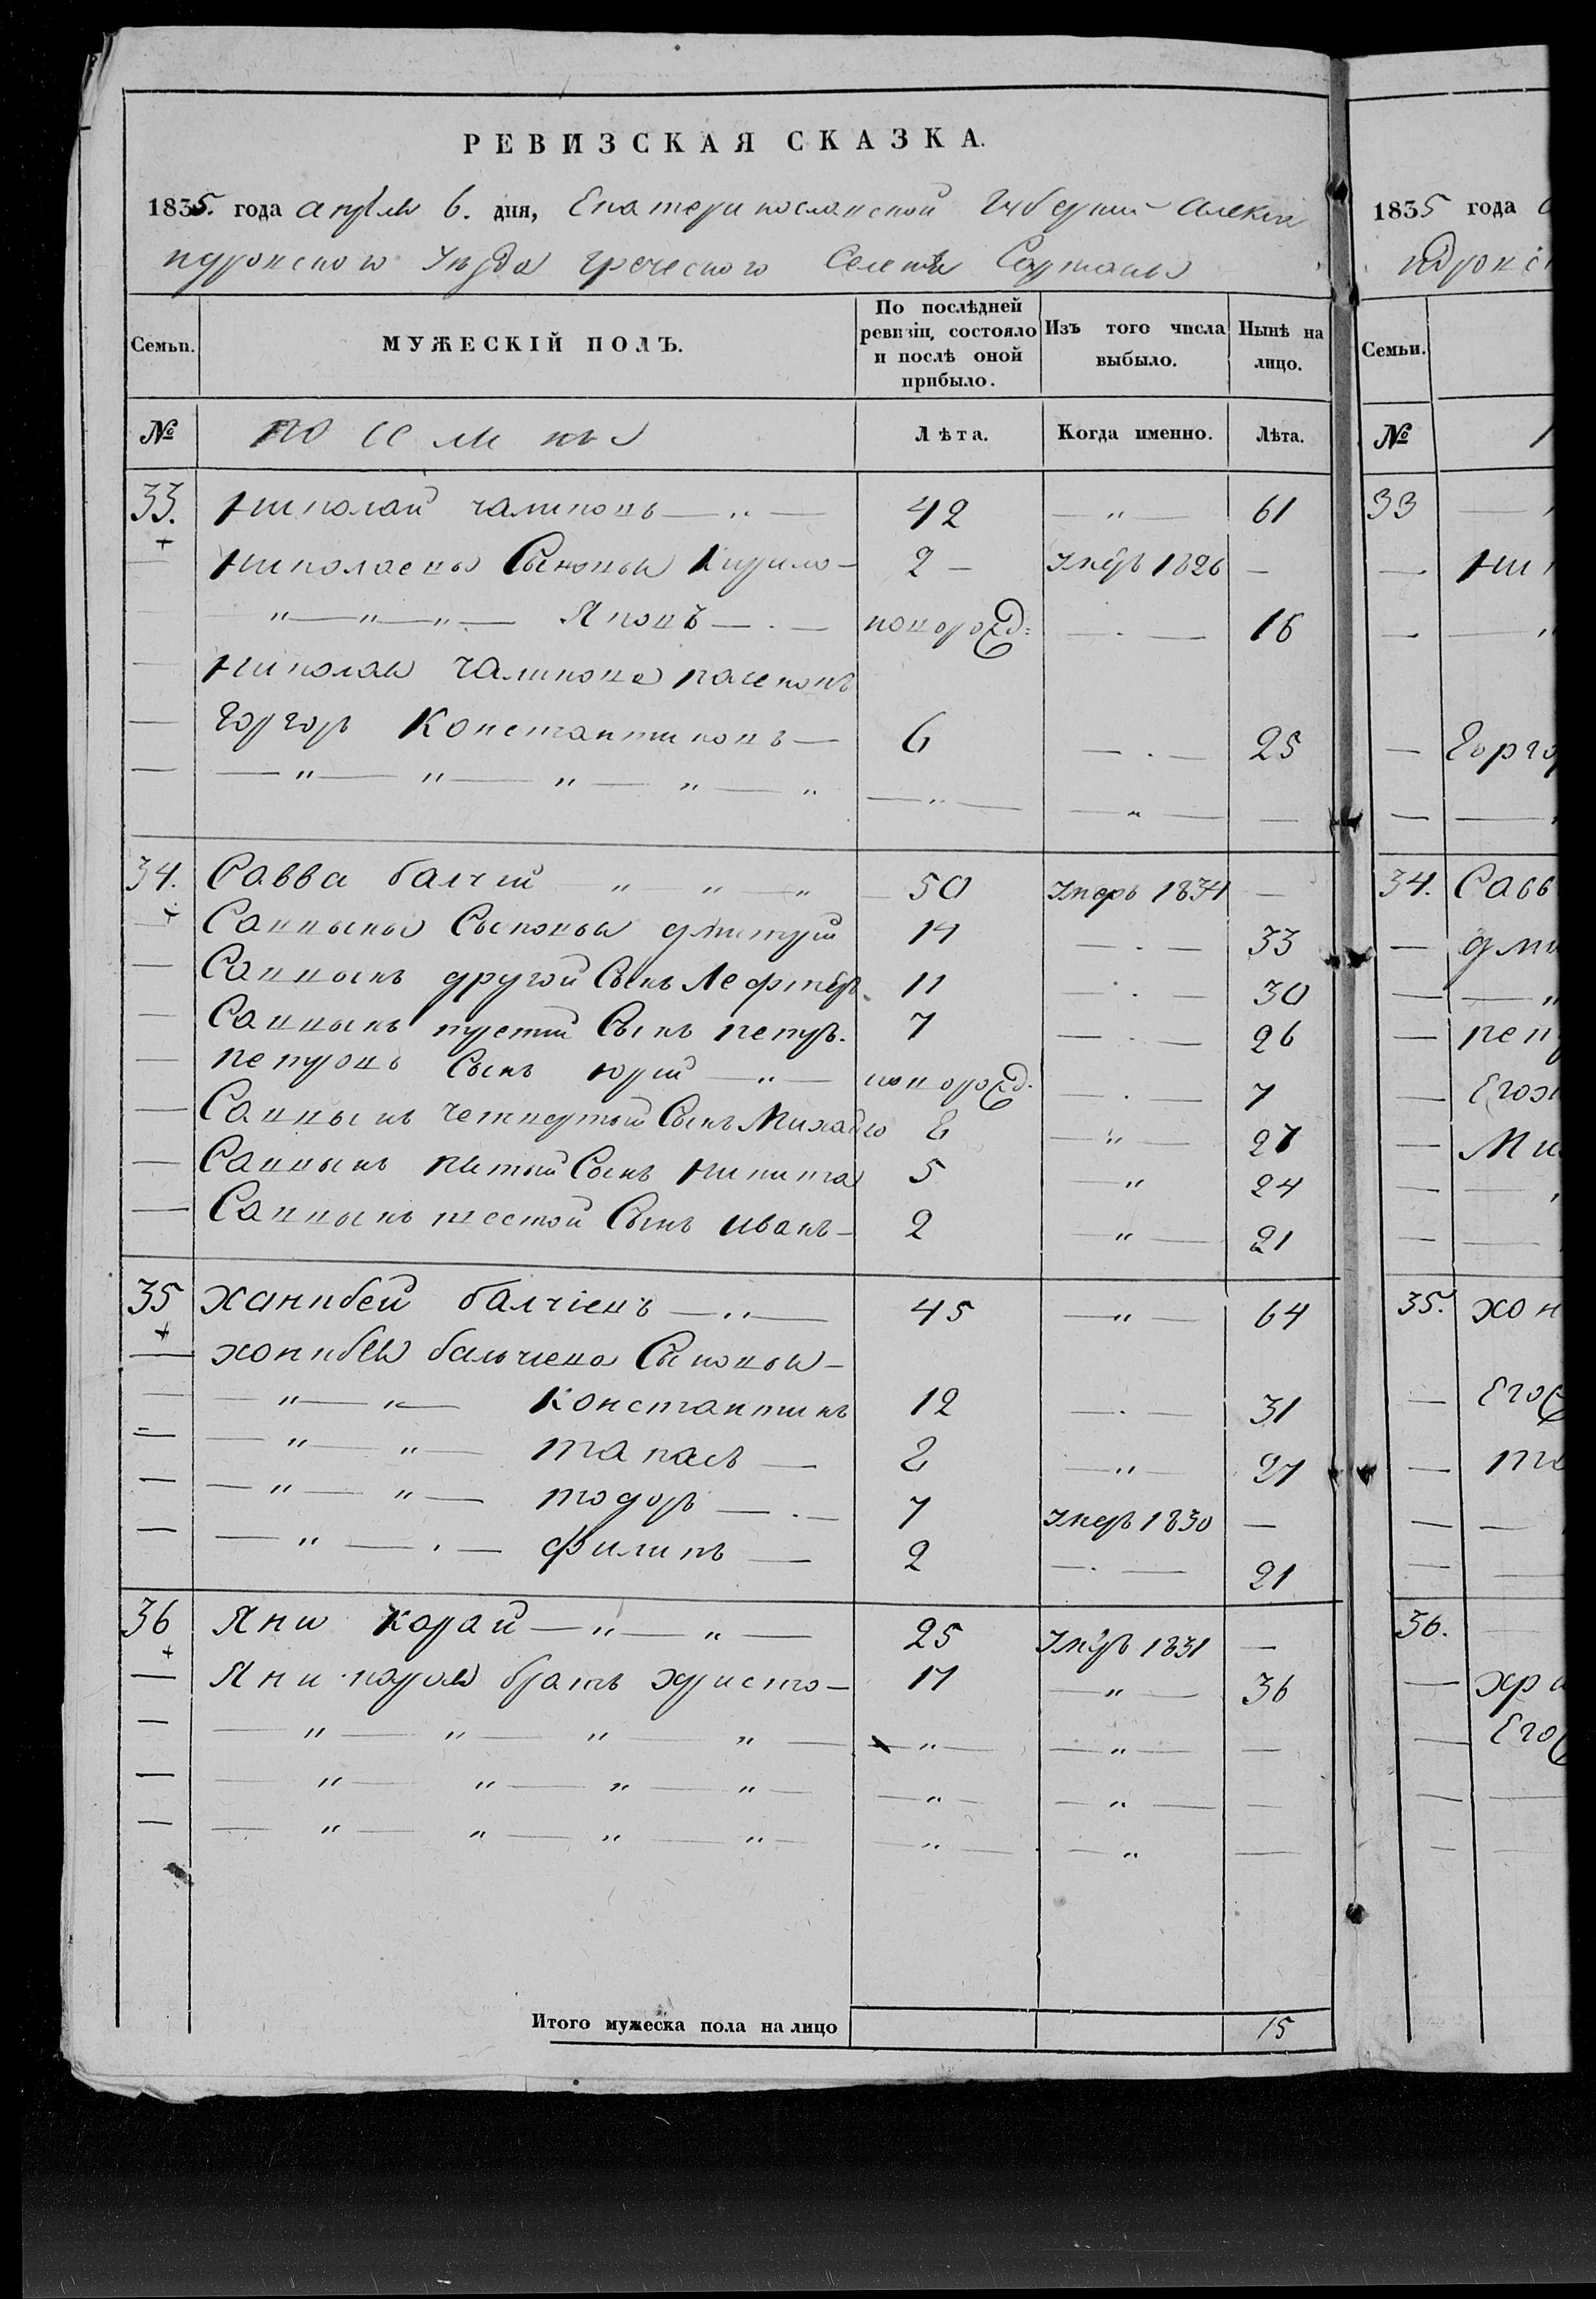 РЕВИЗСКАЯ СКАЗКА.
1835. года апреля 6. дня, Екатеринославской Губернии Алексан
дровского Уезда греческого Селения Сартаны
Семьи. МУЖЕСКІЙ ПОЛЪ. По послѣдней ревизіи, состояло и послѣ оной прибыло. Изъ того числа выбыло. Нынѣ на лицо.
№ Лѣта. Когда именно. Лѣта.
33. Николай чалиновъ — „ — 42 — „ — 61
— Николаевы Сыновья Кирило — 2 — Умеръ 1826 —
— „ — „ — „ — Яковъ — . — новорожд: — . — 16
— Николая Чалинова пасенокъ
— Горгоръ Константиновъ — 6 — . — 25
— — „ — „ — „ — „ — „ — „ — — „ — —
34. Савва балчии „ — „ — „ — 50 Умеръ 1834 —
— Саввыны Сыновья дмитрий 14 — . — 33
— Саввынъ другой Сынъ Лефтеръ 11 — . — 30
— Саввынъ третий Сынъ петръ. 7 — . — 26
— петровъ Сынъ юрий — „ — новорожд. — . — 7
— Саввынъ четвертой Сынъ Михайло 8 — „ — 27
— Саввынъ пятый Сынъ Никита 5 — „ 24
— Саввынъ шестой Сынъ иванъ — 2 — „ — 21
35 ханибей балчіевъ — „ — 45 — „ — 64
— хонибея бальчиева Сыновья —
— — „ — „ — Константинъ 12 — . — 31
— — „ — „ — танасъ — 8 — „ — 27
— — „ — „ — тодоръ — . — 7 Умеръ 1830 —
— — „ — . — филипъ — 2 — . — 21
36 Яни карай — „ — „ — 25 Умеръ 1831 —
— Яни карая братъ христо — 17 — „ — 36
— — „ — „ — „ — „ — — „ — — „ — —
— — „ — „ — „ — „ — — „ — — „ — —
— — „ — „ — „ — „ — — „ — — „ —
Итого мужеска пола на лицо 15
1835 года
Семьи.
№
33
Горго
34. Савв
дми
пет
Миха
35. хон
Егож
та
36.
хри
Егож